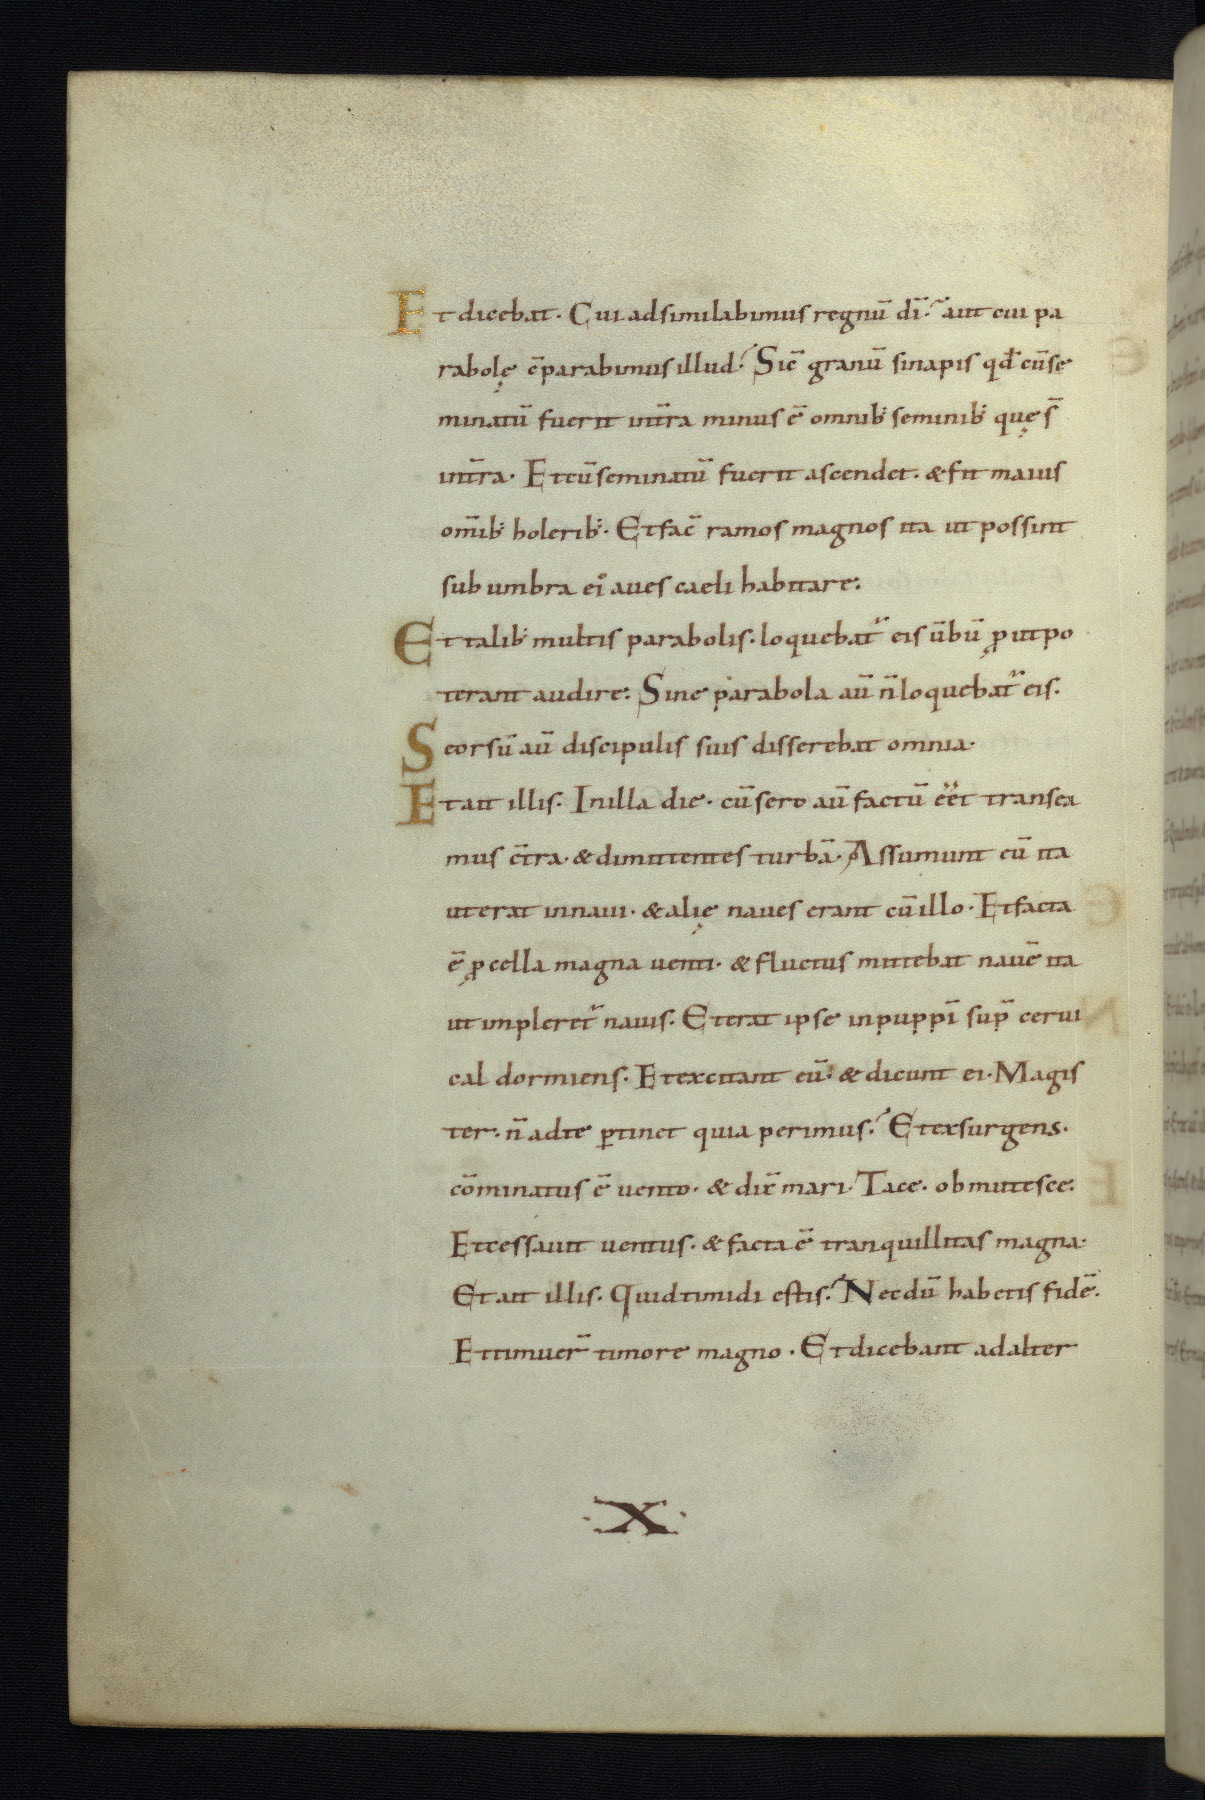 Et dicebat. Cui adsimilabimus regnū dī. aut cui pa
rabolę c̄parabimus illud? Sic̄ granū sinapis qđ cū se
minatū fuerit int̄ra minus ē omnib; seminib; quę s̄
int̄ra. Et cū seminatū fuerit ascendet. & fit maius
om̄ib; holerib;. Et fac̄ ramos magnos ita ut possint
sub umbra ei᾿ aues caeli habitare.
Et talib; multis parabolis. loquebat᷑ eis ūbū ꝓut po
terant audire. Sine parabola aū n̄ loquebat᷑ eis.
Seorsū aū discipulis suis disserebat omnia.
Et ait illis. In illa die. cū sero aū factū ēēt transea
mus c̄tra. & dimittentes turbā. Assumunt eū ita
ut erat in naui. & alię naues erant cū illo. Et facta
ē ꝓcella magna uenti. & fluctus mittebat nauē ita
ut impleret᷑ nauis. Et erat ipse in puppī sup̄ cerui
cal dormiens. Et excitant eū. & dicunt ei. Magis
ter. n̄ ad te ꝑtinet quia perimus? Et exsurgens.
cōminatus ē uento. & dix̄ mari. Tace. obmutesce.
Et cessauit uentus. & facta ē tranquillitas magna.
Et ait illis. Quid timidi estis? Necdū habetis fidē.
Et timuer̄ timore magno. Et dicebant ad alter
·X·